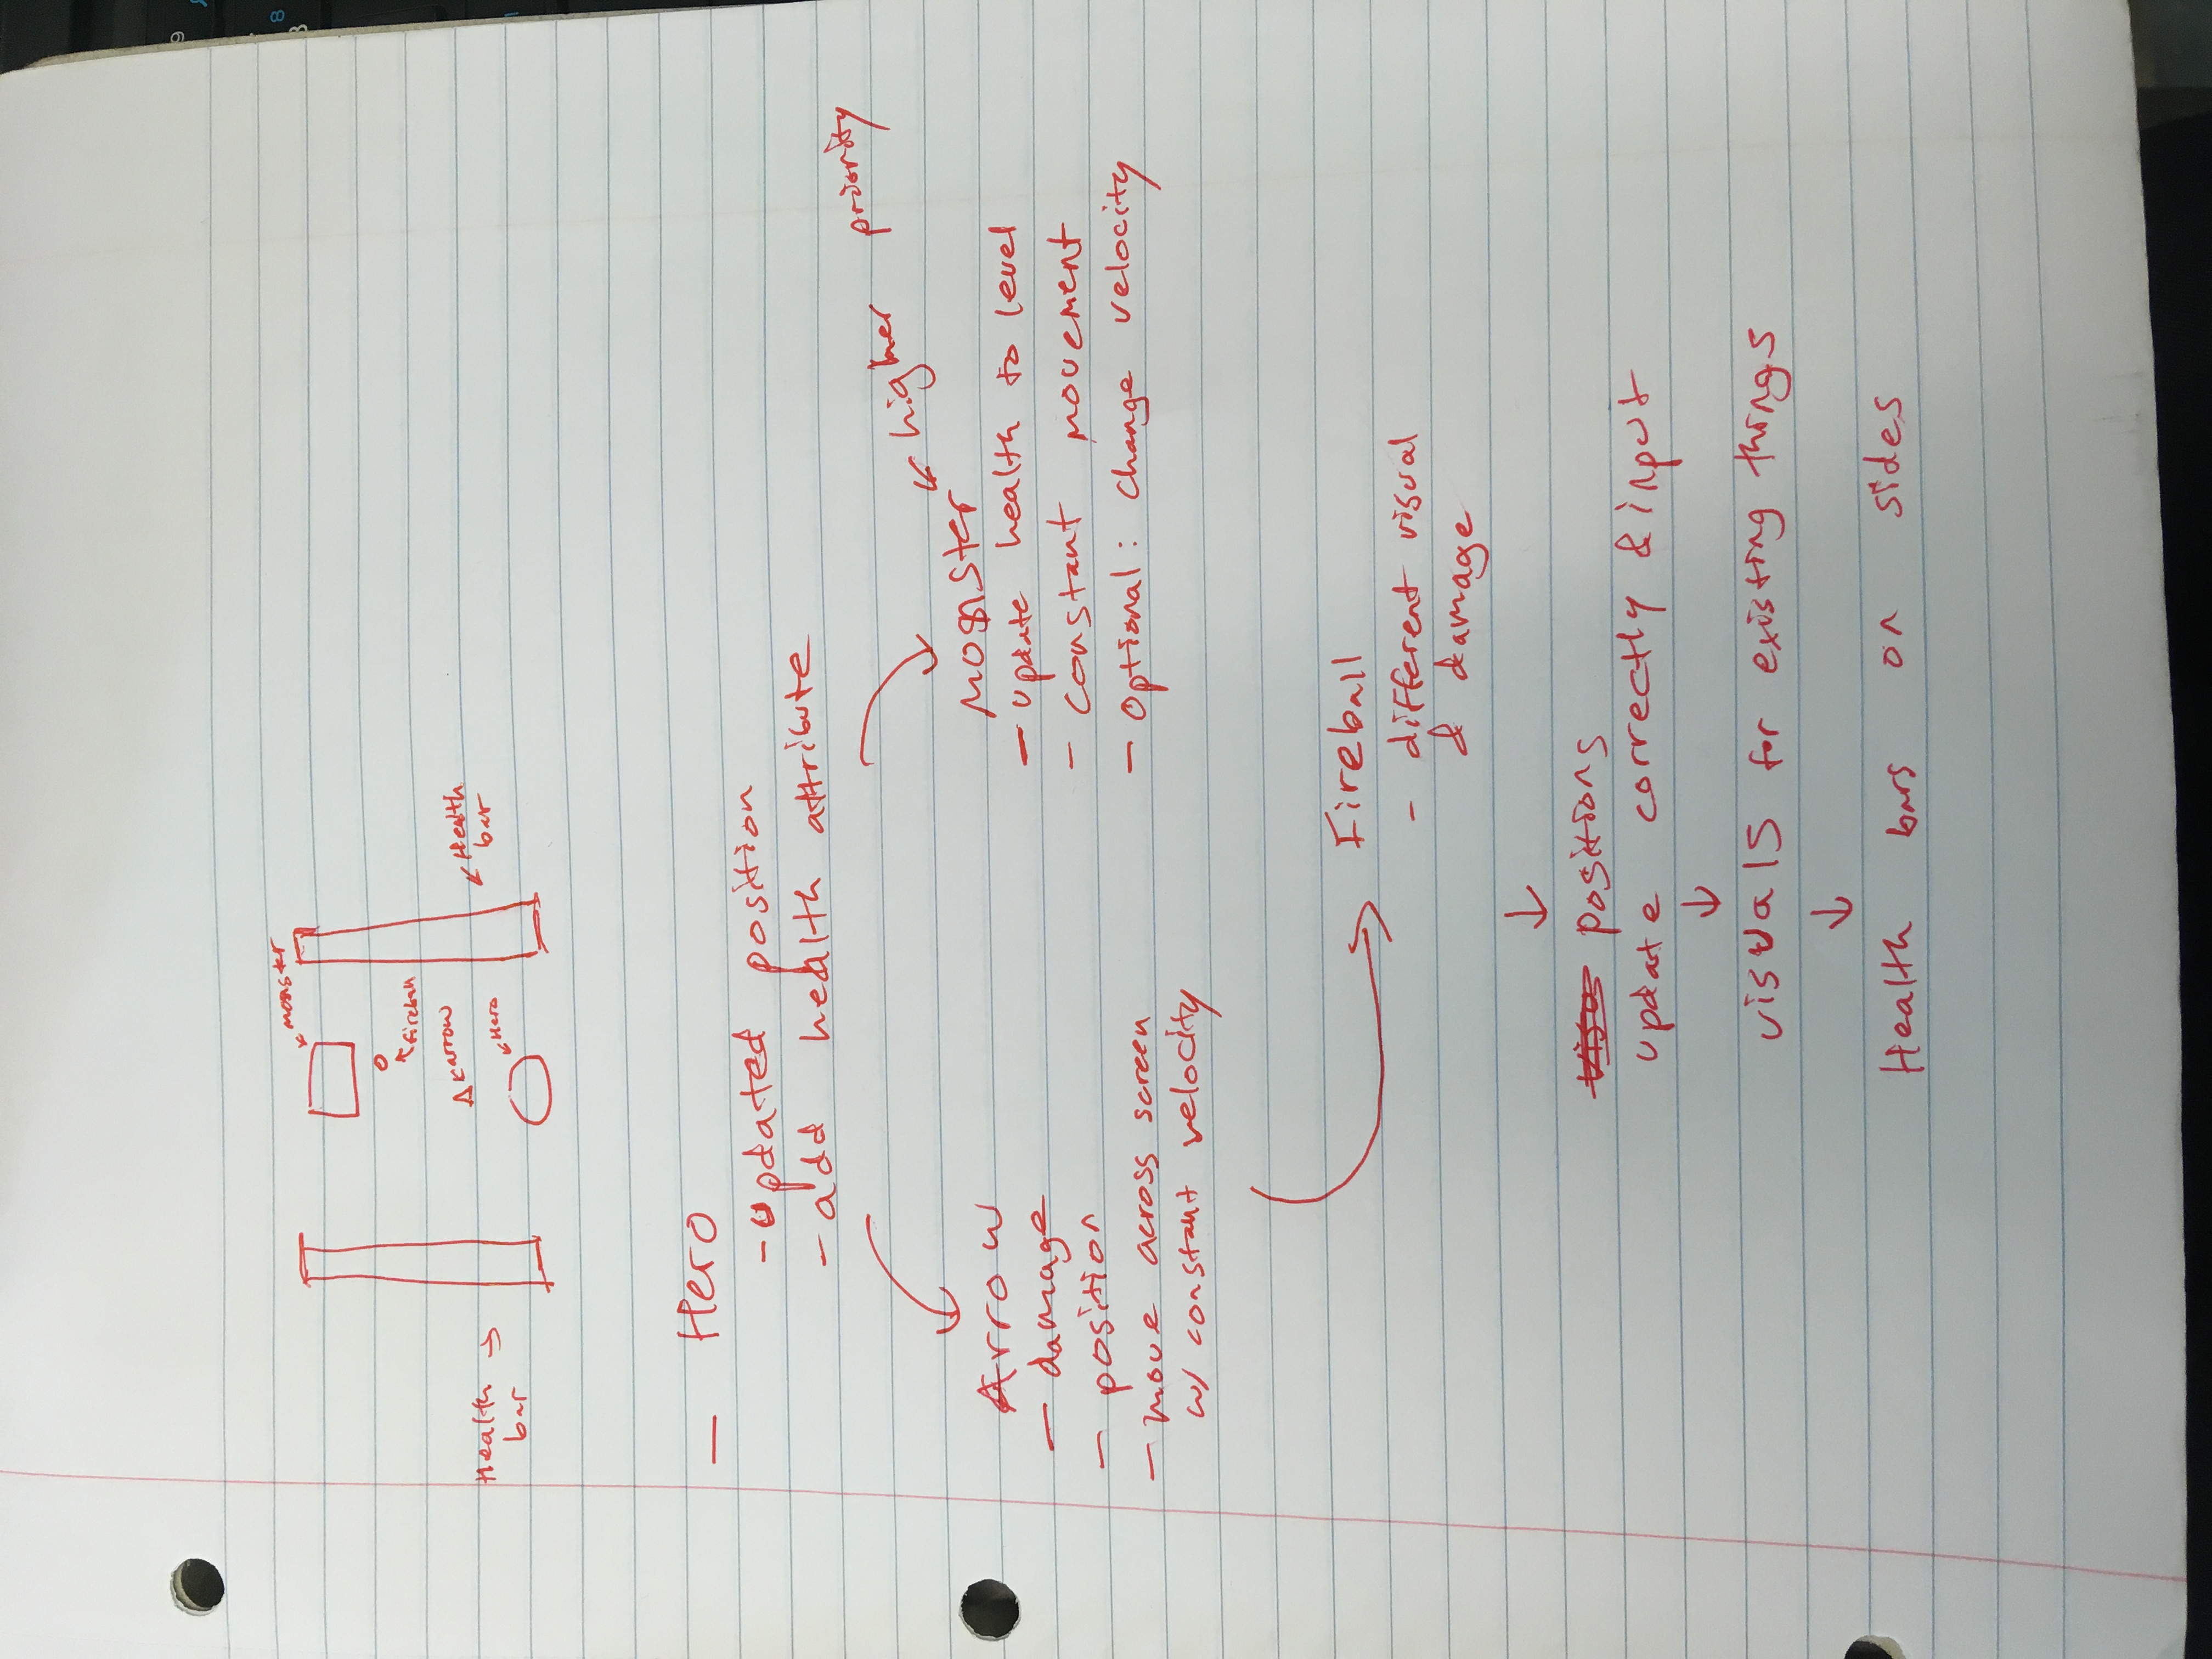 monster
fireball
arrow
Health
bar
Health
bar
Hero
— Hero
- updated position
- add health attribute
higher priority
Arrow
— damage
— position
— move across screen
w/ constant velocity
Monster
— update health to level
- constant movement
- optional: change velocity
Fireball
- different visual
& damage
positions
update correctly & input
visuals for existing things
Health bars on sides
9
8